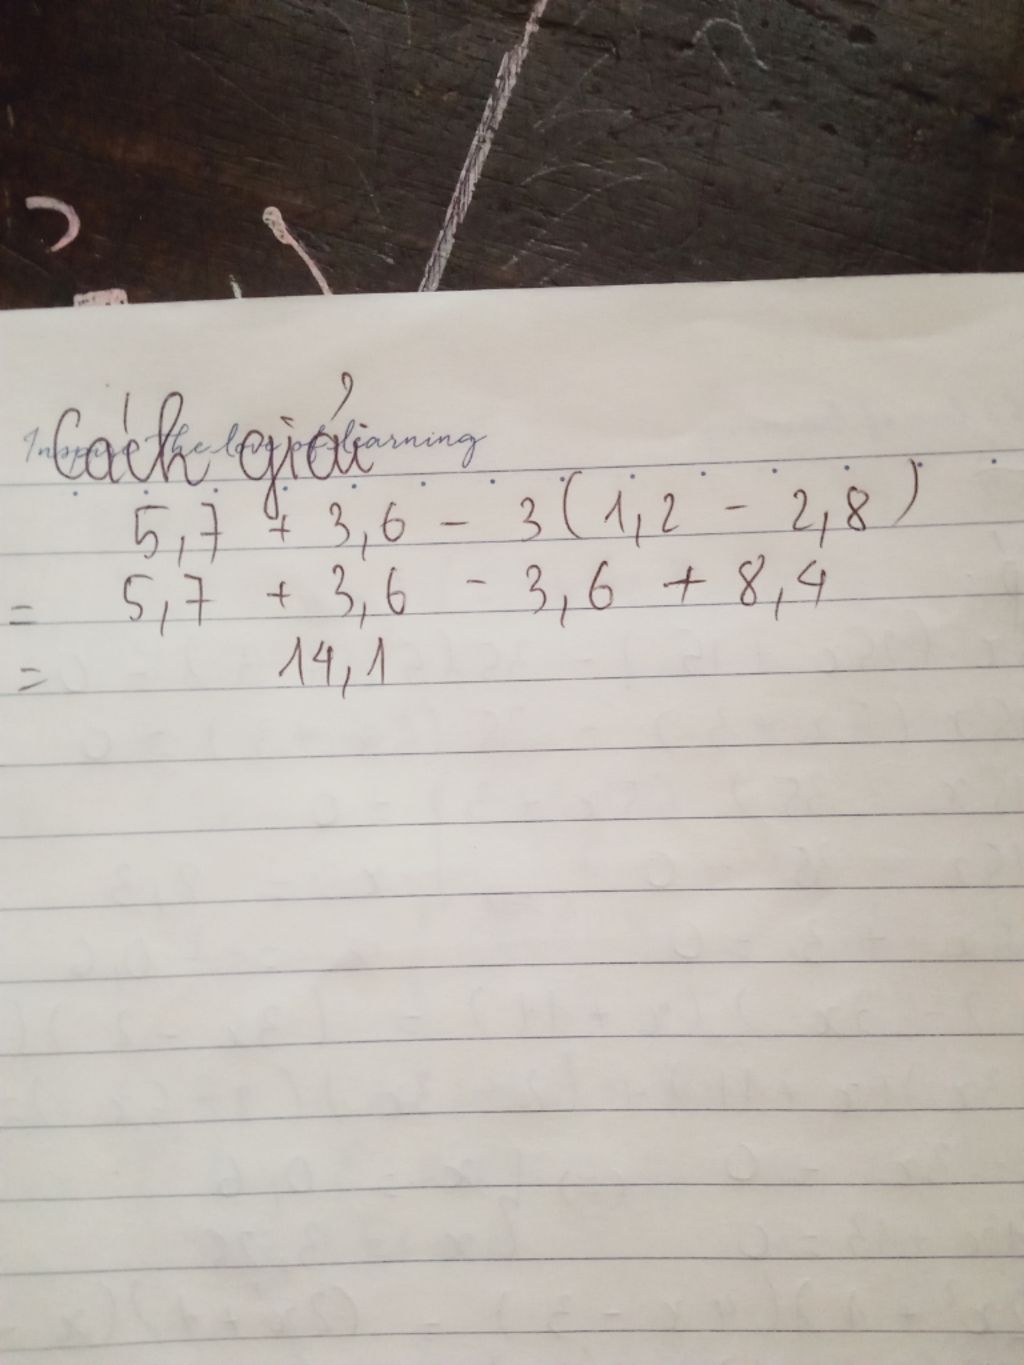 Inspire the love of learning
Cách giải
5,7 + 3,6 - 3(1,2 - 2,8)
= 5,7 + 3,6 - 3,6 + 8,4
= 14,1